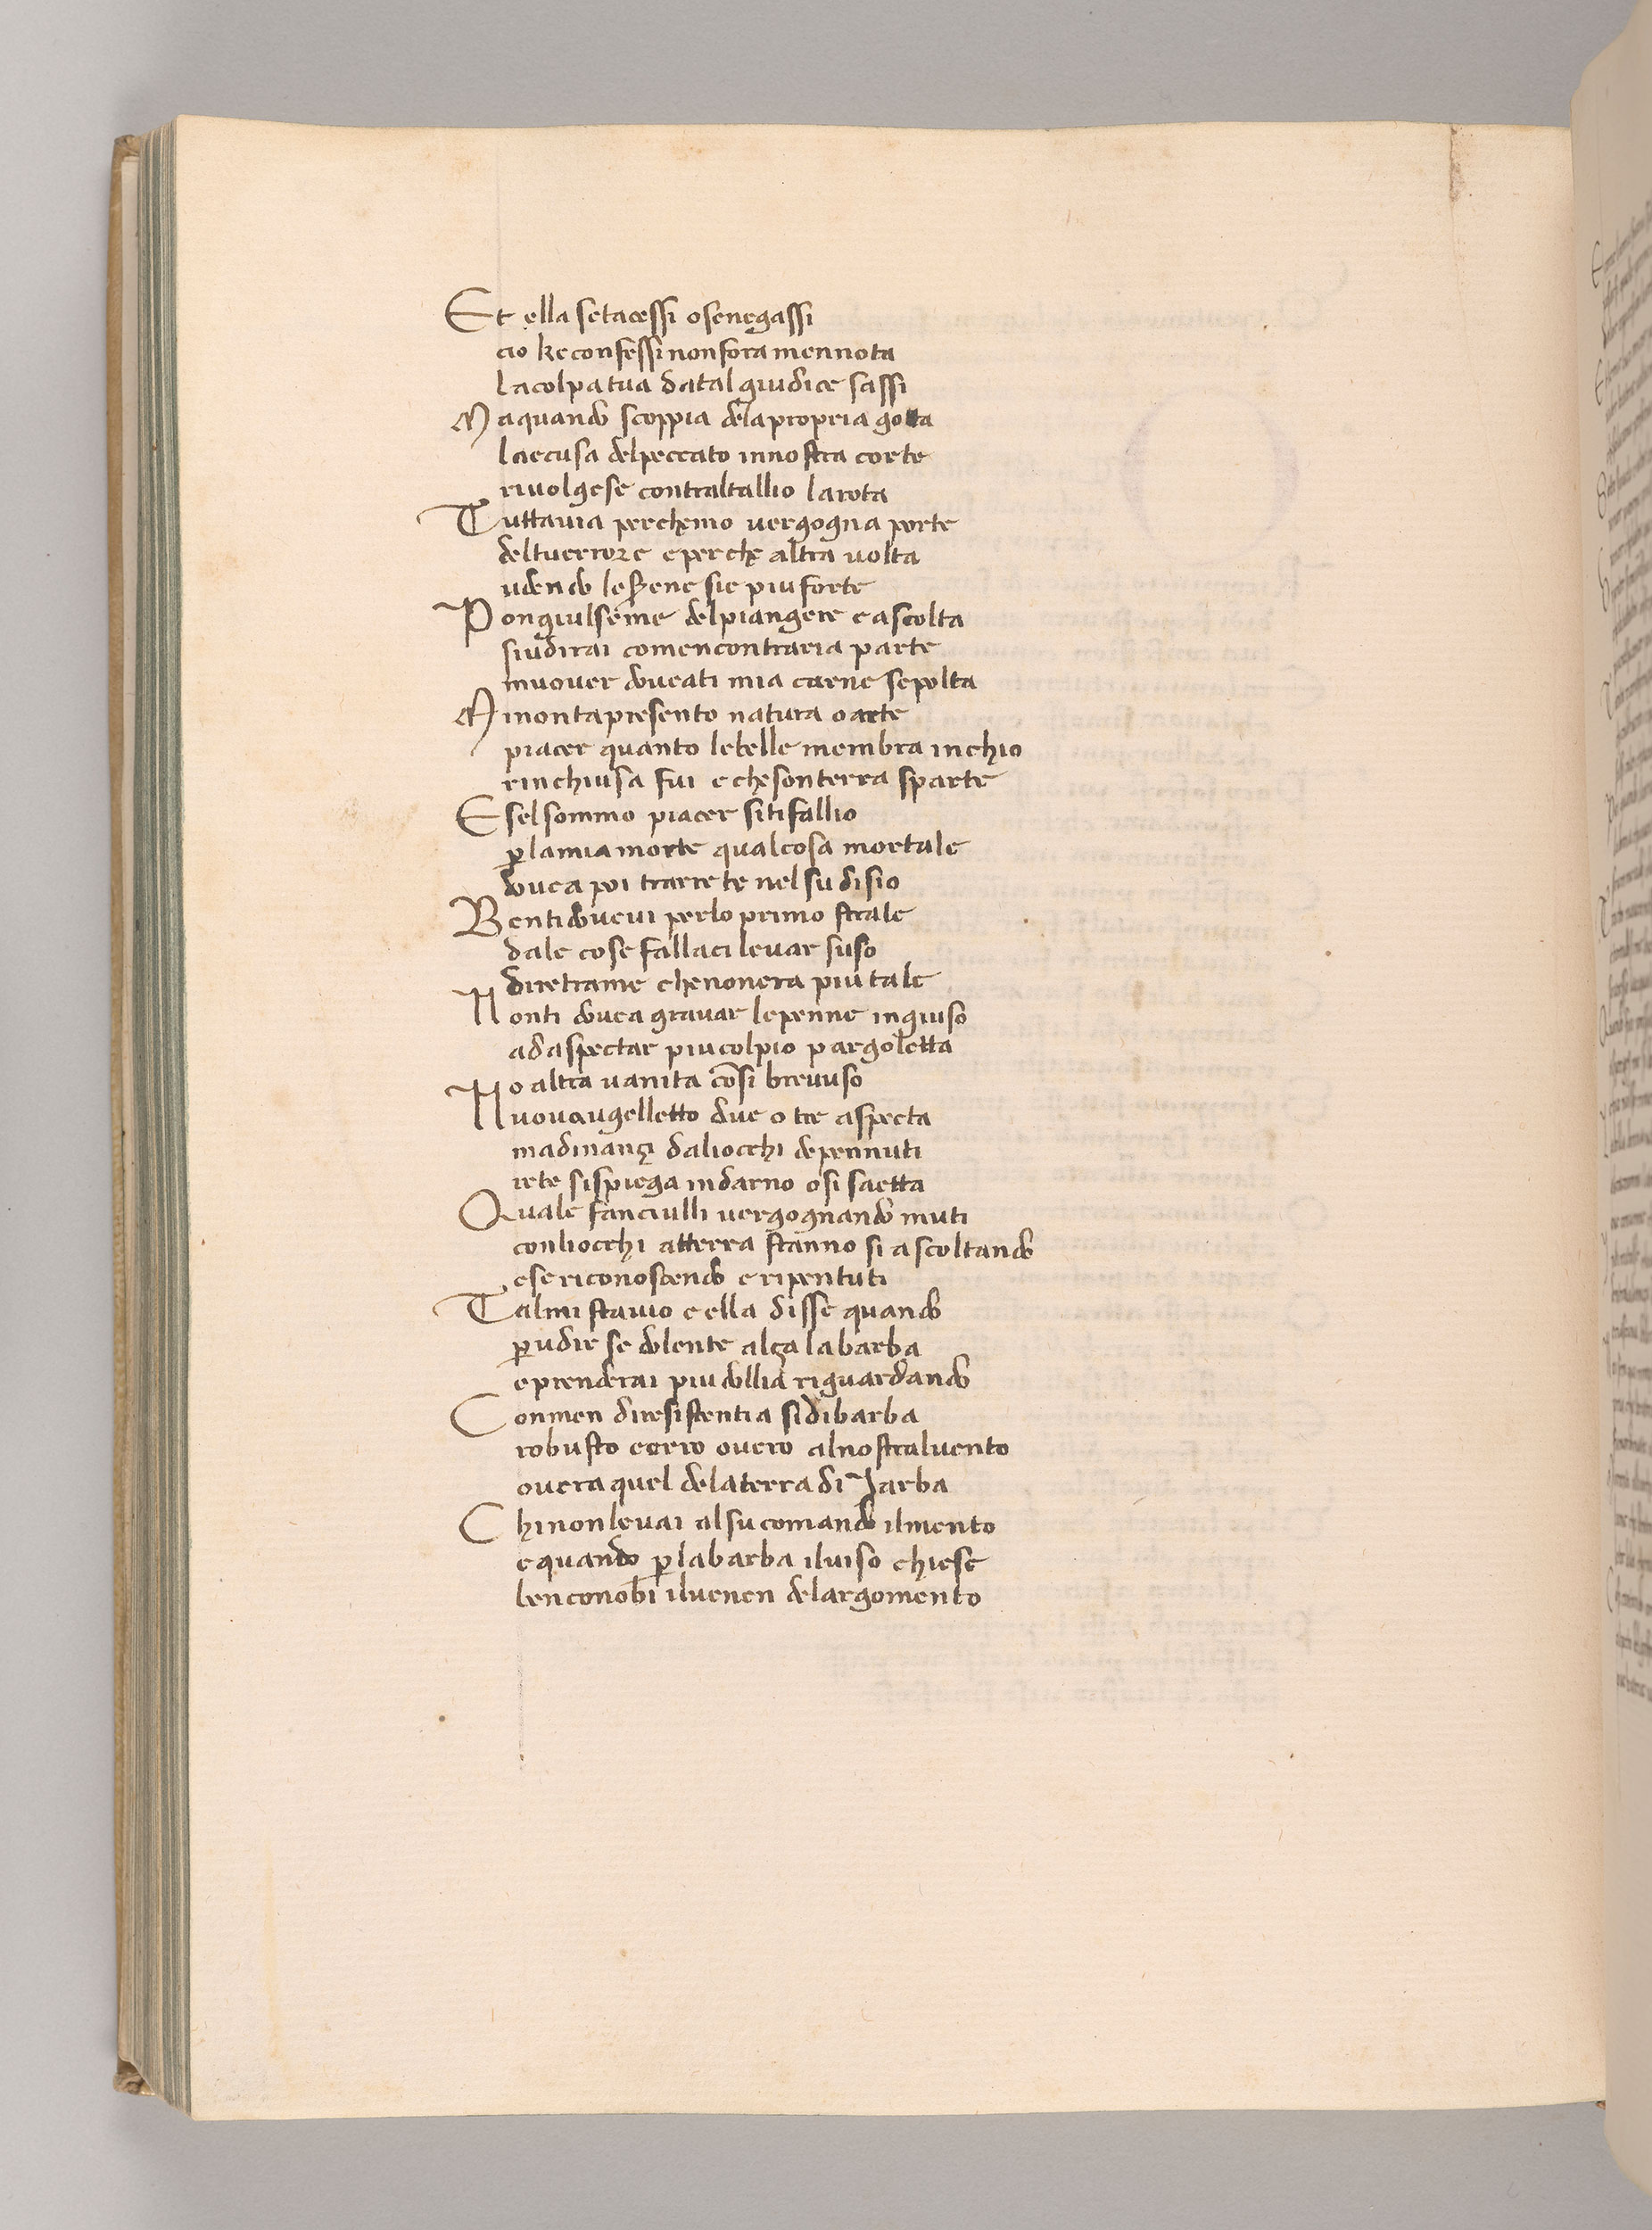 Et ella setacessi osenegassi
cio keconfessi nonfora mennota
lacolpa tua datal giudice sassi
Maquando scoppia delapropria gota
laccusa delpeccato innostra corte
rivolgese contraltallio larota
Tuttavia perchemo vergogna porte
deltuerrore eperche altra volta
udendo leserene sie piuforte
Pongiulseme delpiangere eascolta
siudirai comencontraria parte
muover doveati mia carne sepolta
Aimontapresento natura oarte
piacer quanto lebelle membra inchio
rinchiusa fui echesonterra sparte
Eselsommo piacer sitifallio
p̱lamiamorte qualcosa mortale
dovea poi trarrete nelsu disio
Bentidovevi perlo primo strale
dale cose fallaci levar suso
diretrame chenonera piutale
Nonti dovea gravar lepenne ingiuso
adaspectar piucolpio pargoletta
No altra vanita cōsi brevuso
Nuovaugelletto due o tre aspecta
madinançi daliocchi depennuti
rete sispiega indarno osi saetta
Quale fanciulli vergognando muti
conliocchi atterra stanno si ascoltando
esericonoscendo eripentuti
Talmi stavio eella disse quando
p̱udir se dolente alça labarba
eprenderai piu dollia riguardando
Conmen diresistentia sidibarba
robusto cerro overo alnostralvento
overa quel delaterra di Jarba
Chinonlevai alsu comando ilmento
equando p̱labarba ilviso chiese
benconobi ilvenen delargomento